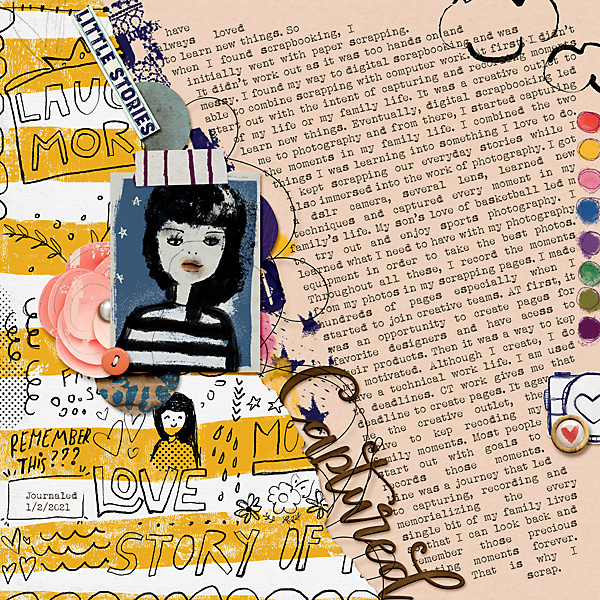 LITTLE STORIES
LAUG
MOR
have loved
always
to learn new things. So
when I found scrapbooking, I
initially went with paper scrapping.
It didn't work out as it was too hands on and
messy. I found my way to digital scrapbooking and was
able to combine scrapping with computer work at first. I didn't
start out with the intent of capturing and recording moments
of my life or my family life. It was a creative outlet to
learn new things. Eventually, digital scrapbooking led
me to photography and from there, I started capturing
the moments in my family life. I combined the two
things I was learning into something I love to do.
kept scrapping our everyday stories while I
also immersed into the work of photography. I got
dslr camera, several lens, learned new
techniques and captured every moment in my
family's life. My son's love of basketball led m
to try out and enjoy sports photography.
learned what I need to have with my photography
equipment in order to take the best photos.
Throughout all these, I record the moments
from my photos in my scrapping pages. I made
hundreds of pages especially when I
started to join creative teams. AT first, it
was an opportunity to create pages for
favorite designers and have acess to
their products. Then it was a way to kep
motivated. Although I create, I do
have a technical work life. I am used
deadlines. CT work gives me that
deadline to create pages. It agave
me the creative outlet, the
to kep recoding my
family moments. Most people
start out with goals to
records those moments.
one was a journey that led
to capturing, recording and
memorializing the every
single bit of my family lives
that I can look back and
remember those precious
moments forever.
That is why I
scrap.
REMEMBER
THIS???
MO
LOVE
Journaled
1/2/2021
STORY OF
Captured